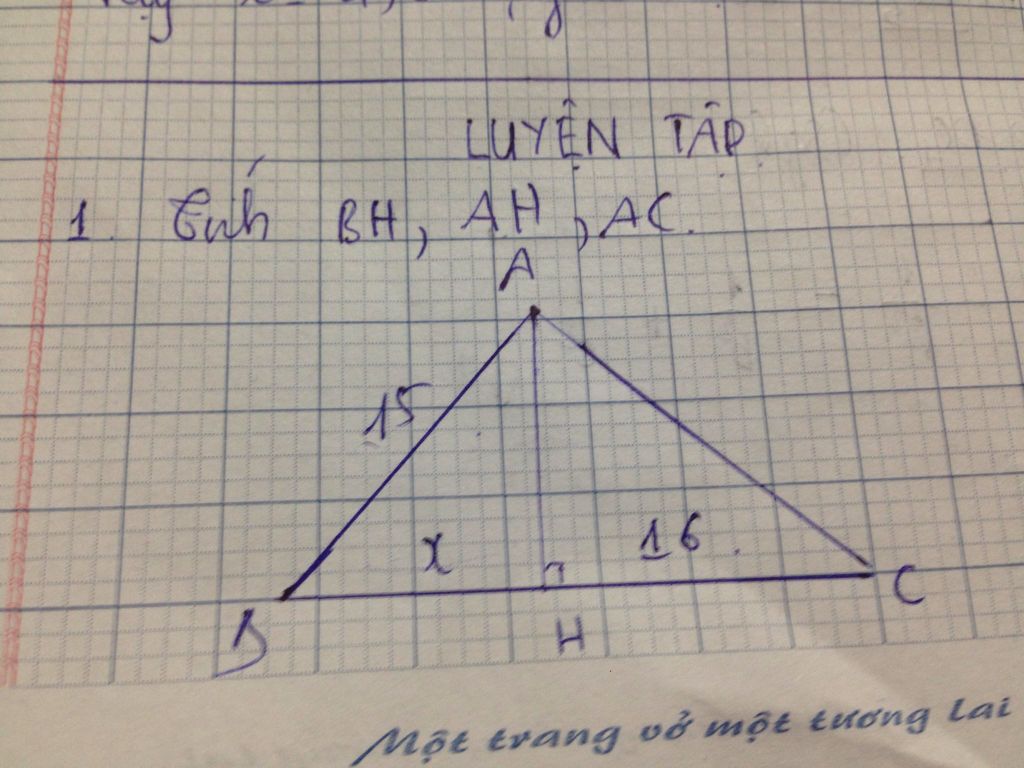 LUYỆN TẬP
1. Tính BH, AH, AC.
A
15
x
16
B
H
C
Một trang vở một tương lai